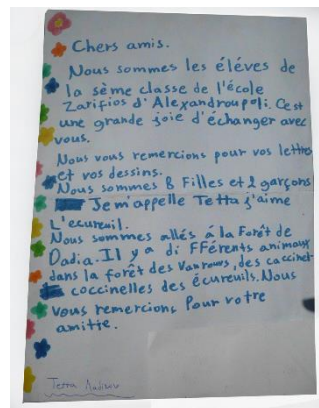 Chers amis.
Nous sommes les éléves de
la sème classe de l'école
Zarifios d'Alexandroupoli. C'est
une grande joie d'échanger avec
vous.
Nous vous remercions pour vos lettres
et vos dessins.
Nous sommes 8 Filles et 2 garçons
Je m'appelle Tetta j'aime
L'ecureuil.
Nous sommes allés á la Forêt de
Dadia. Il y a di FFérents animaux
dans la forêt des , des
coccinelles des écureuils. Nous
vous remercions Pour votre
amitie.
Tetta